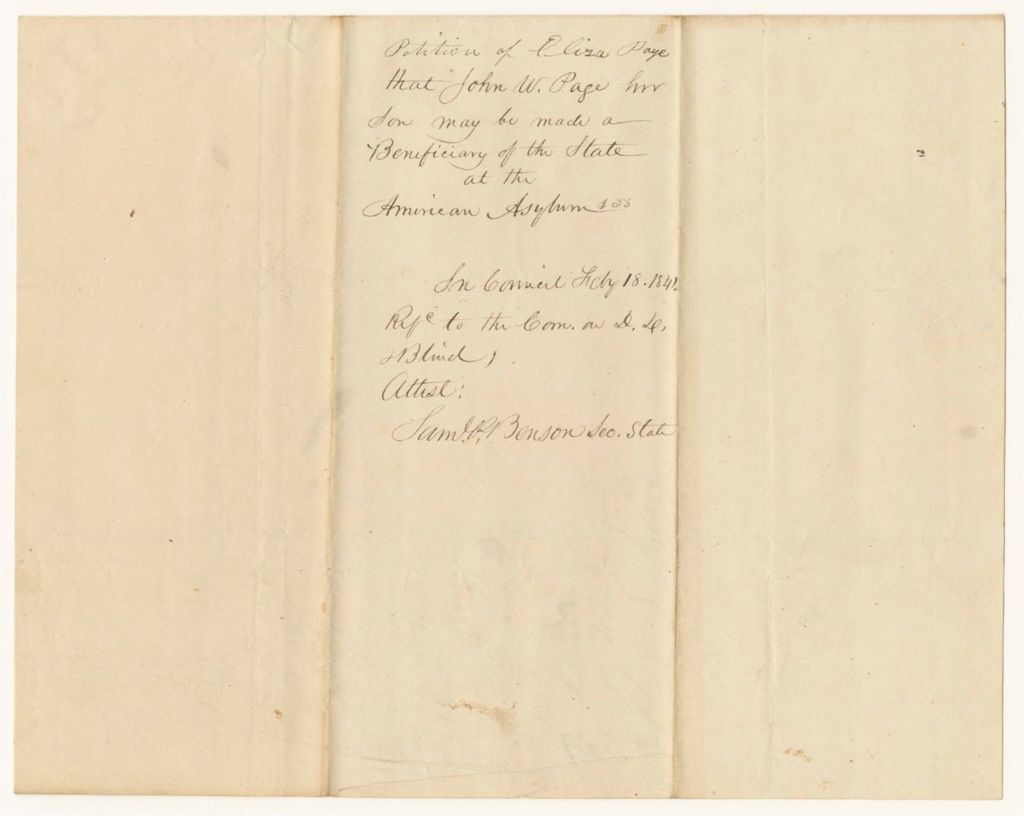 Petition of Eliza Page
that John W. Page her
Son may be made a
Beneficiary of the State
at the
American Asylum
In Council Feby 18. 1841.
Refd to the Com. on D. D.
& Blind,
Attest:
Saml. P. Benson Sec. State